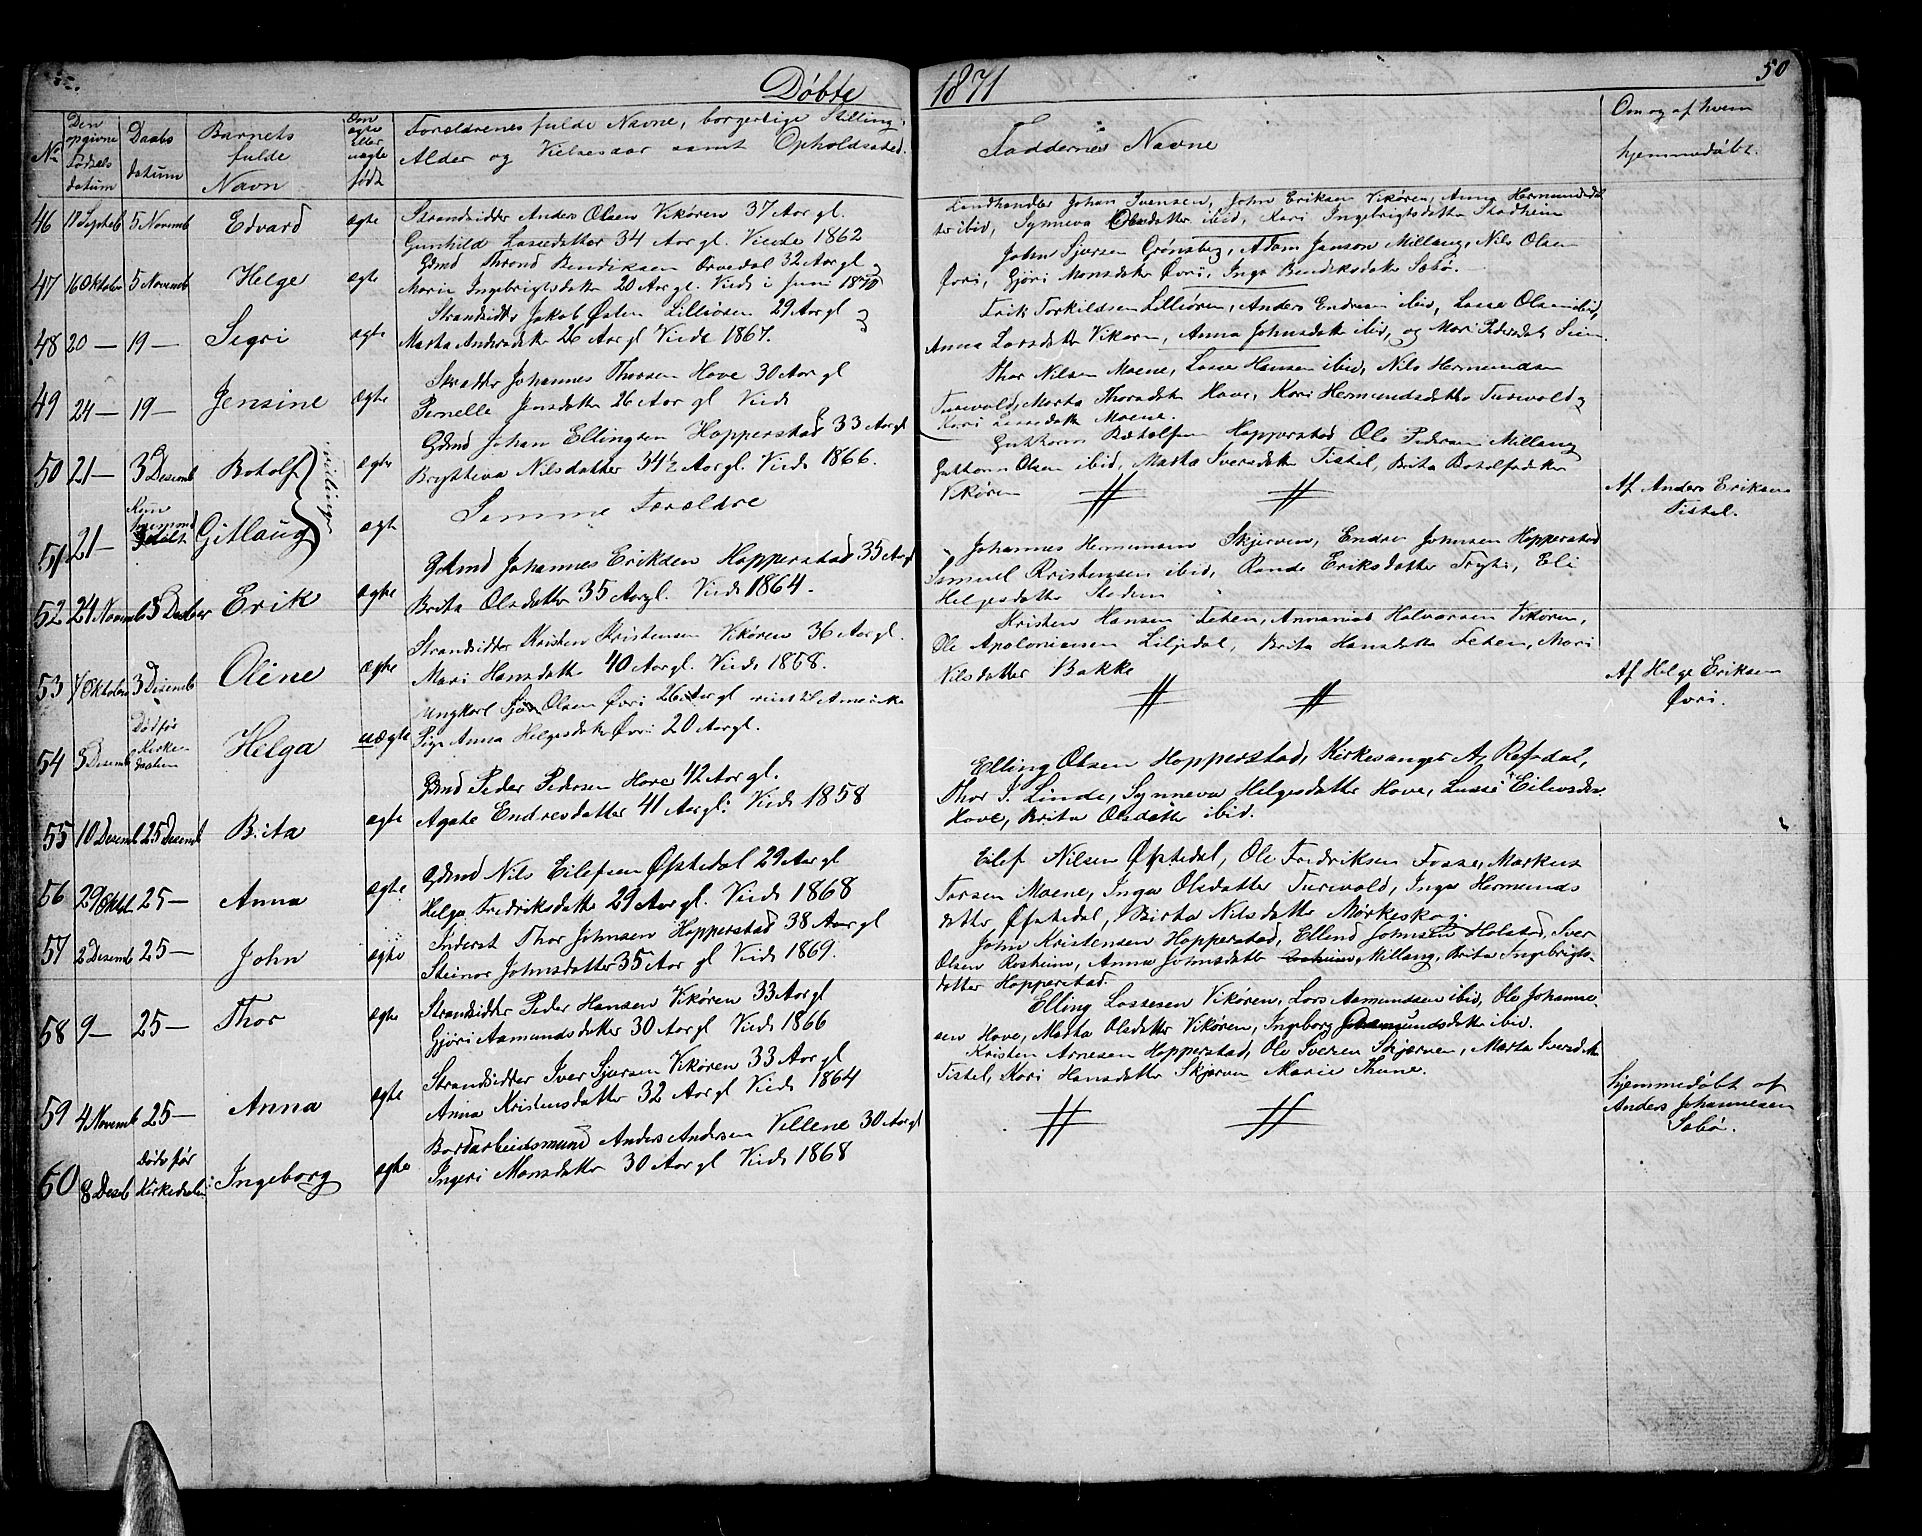 Döbte
1871
50
No
Den opgivne Födsels datum
Daabs datum
Barnets fulde Navn
Om ægte eller uægte födt
Forældrenes fulde Navne, borgerlige Stilling,
Alder og Vielsesaar samt Opholdssted.
Faddernes Navne
Om og af hvem hjemmedöbt.
46 17 Septeb 5 Novemb Edvard ægte
Strandsidder Anders Olsen Vikören 37 Aar gl.
Gunhild Lassedatter 34 Aar gl. Viede 1862
Landhandler Johan Svensen, John Eriksen Vikören, Anna Hermundsdat
ter ibid, Synneva Olsdatter ibid, Kari Ingebrigtsdatter Stadheim
47 16 Oktober 5 Novemb Helge ægte
Gdmd Thrond Bendiksen Orvedal 32 Aar gl og
Marie Ingebrigtsdatter 20 Aar gl. Viede i Juni 1870
John Sjursen Grønsberg, Adam Janson Millang, Nils Olsen
Övri, Gjöri Monsdatter Övri, Inga Bendiksdatter Sæbö.
48 20 — 19 — Sigri ægte
Strandsidder Jakob Östen Lilliören 29 Aar gl og
Marta Andersdatter 26 Aar gl Viede 1867.
Erik Torkildsen Lilliören, Anders Endresen ibid, Lasse Olsen ibid,
Anna Larsdatter Vikören, Anna Johnsdatter ibid, og Mari Pedersdat Seim.
49 24 — 19 — Jensine ægte
Skrædder Johannes Thorsen Hove 30 Aar gl
Pernelle Jensdatter 26 Aar gl Viede
Thor Nilsen Moene, Lasse Hansen ibid, Nils Hermundsen
Turvold, Marta Thorsdatter Hove, Kari Hermundsdatter Turvold og
Kari Larsdatter Moene.
50 21 — 3 Desemb Botolf ægte
tvilinger
Gdmd Johan Ellingsen Hopperstad 33 Aar gl
Brytteva Nilsdatter 34½ Aar gl. Viede 1866.
Guttorm Botolfsen Hopperstad Ole Pedersen Millang
Guttorm Olsen ibid, Marta Iversdatter Tistel, Brita Botolfsdatter
Vikören
51 21 — Kun hjemmedöbt Gitlaug ægte
Samme Forældre
Af Anders Eriksen
Tistel.
52 24 Novemb 3 Desember Erik ægte
Gdmd Johannes Eriksen Hopperstad 35 Aar gl
Brita Olsdatter 35 Aar gl. Viede 1864.
Johannes Hermunsen Skjerven, Endre Johnsen Hopperstad
Samuel Kristensen ibid, Rande Eriksdatter Tryti, Eli
Helgesdatter Stadem
53 Oktober 3 Desemb Oline ægte
Strandsidder Kristen Kristensen Vikören 36 Aar gl.
Mari Hansdatter 40 Aar gl. Viede 1868.
Kristen Hansen Feten, Annanias Halvorsen Vikören,
Ole Apoloniussen Liljedal, Brita Hansdatter Feten, Mari
Nilsdatter Bakke
54 3 Desemb Död för Kirke daaben Helga uægte
Ungkarl Sjur Olsen Övri 26 Aar gl reist til Amerika
Pige Anna Helgesdatter Övri 20 Aar gl.
Af Helge Eriksen
Övri.
55 10 Desemb 25 Desemb Brita ægte
Gdmd Peder Pedersen Hove 42 Aar gl.
Agate Endresdatter 41 Aar gl. Viede 1858
Elling Olsen Hopperstad, Kirkesanger A. Refsdal,
Thor I. Linde, Synneva Helgesdatter Hove, Lussi Eilevsdtr.
Hove, Brita Olsdatter ibid.
56 29 Oktb. 25 — Anna ægte
Gdmd Nils Eilefsen Öftedal 29 Aar gl
Helga Fredriksdatter 29 Aar gl. Viede 1868
Eilef Nilsen Öftedal, Ole Fredriksen Fosse, Markus
Torsen Moene, Inga Olsdatter Turvold, Inga Hermunds
datter Öftedal, Birta Nilsdatter Mørkeskog.
57 2 Desemb 25 — John ægte
Inderst Thor Johnsen Hopperstad 38 Aar gl
Steinor Johnsdatter 35 Aar gl Viede 1869.
John Kristensen Hopperstad, Ellend Johnsen Holstad, Iver
Olsen Rosheim, Anna Johnsdatter Millang, Brita Ingebrigts-
datter Hopperstad.
58 9 — 25 — Thor ægte
Strandsidder Peder Hansen Vikören 33 Aar gl
Gjöri Aamundsdatter 30 Aar gl Viede 1866
Elling Lassesen Vikören, Lars Aamundsen ibid, Ole Johanne
sen Hove, Marta Olsdatter Vikören, Ingeborg Aamundsdatter ibid.
59 4 Novemb 25 — Anna ægte
Strandsidder Iver Sjursen Vikören 33 Aar gl
Anna Kristensdatter 32 Aar gl Viede 1864
Kristen Arnesen Hopperstad, Ole Iversen Skjerven, Marta Iversdatter
Tistel, Kari Hansdatter Skjerven Marie Thune.
60 8 Desb Död för Kirkedaaben Ingeborg ægte
Bordarbeidsmand Anders Andersen Villene 30 Aar gl
Ingeri Monsdatter 30 Aar gl Viede 1868
hjemmedöbt af
Anders Johannesen
Sæbö.